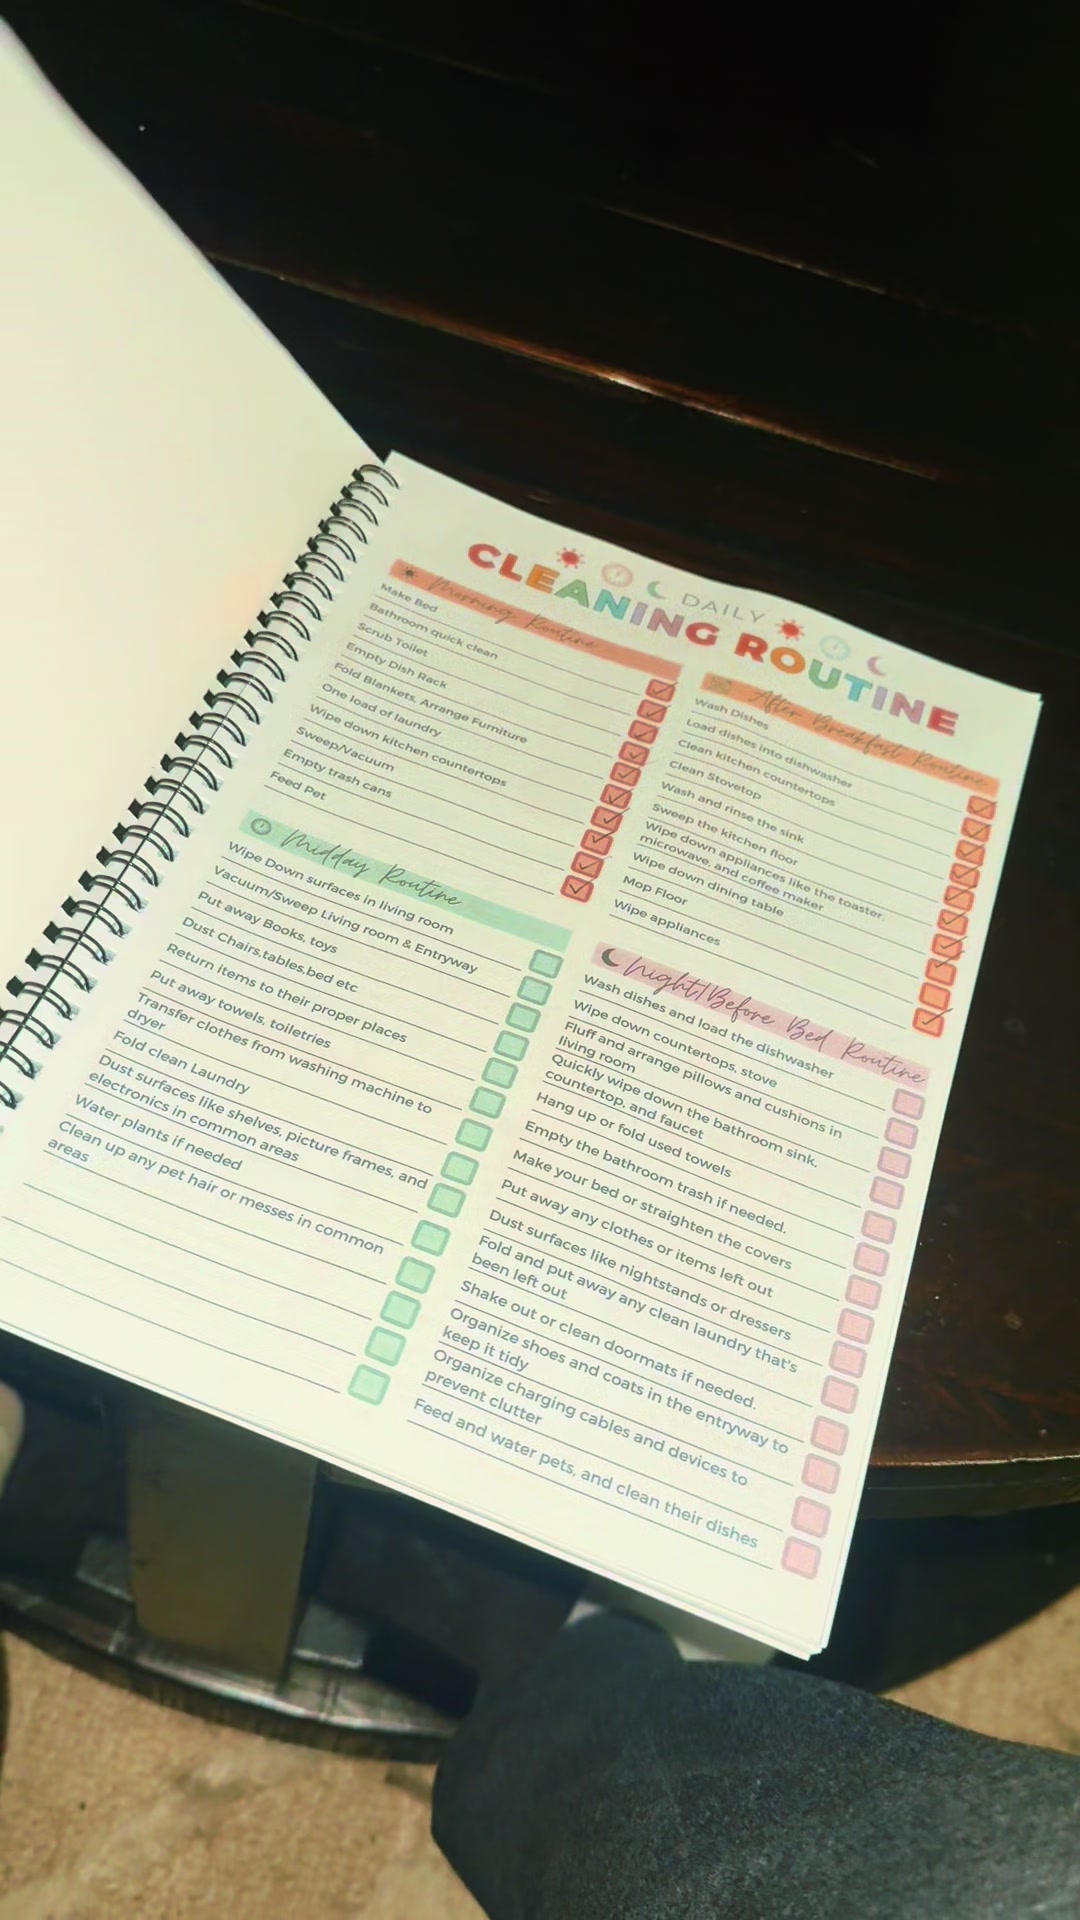 DAILY
CLEANING ROUTINE
Morning Routine
Make Bed
Bathroom quick clean
Scrub Toilet
Empty Dish Rack
Fold Blankets, Arrange Furniture
One load of laundry
Wipe down kitchen countertops
Sweep/Vacuum
Empty trash cans
Feed Pet
After Breakfast Routine
Wash Dishes
Load dishes into dishwasher
Clean kitchen countertops
Clean Stovetop
Wash and rinse the sink
Sweep the kitchen floor
Wipe down appliances like the toaster,
microwave, and coffee maker
Wipe down dining table
Mop Floor
Wipe appliances
Midday Routine
Wipe Down surfaces in living room
Vacuum/Sweep Living room & Entryway
Put away Books, toys
Dust Chairs,tables,bed etc
Return items to their proper places
Put away towels, toiletries
Transfer clothes from washing machine to
dryer
Fold clean Laundry
Dust surfaces like shelves, picture frames, and
electronics in common areas
Water plants if needed
Clean up any pet hair or messes in common
areas
Night/Before Bed Routine
Wash dishes and load the dishwasher
Wipe down countertops, stove
Fluff and arrange pillows and cushions in
living room
Quickly wipe down the bathroom sink,
countertop, and faucet
Hang up or fold used towels
Empty the bathroom trash if needed.
Make your bed or straighten the covers
Put away any clothes or items left out
Dust surfaces like nightstands or dressers
Fold and put away any clean laundry that's
been left out
Shake out or clean doormats if needed.
Organize shoes and coats in the entryway to
keep it tidy
Organize charging cables and devices to
prevent clutter
Feed and water pets, and clean their dishes